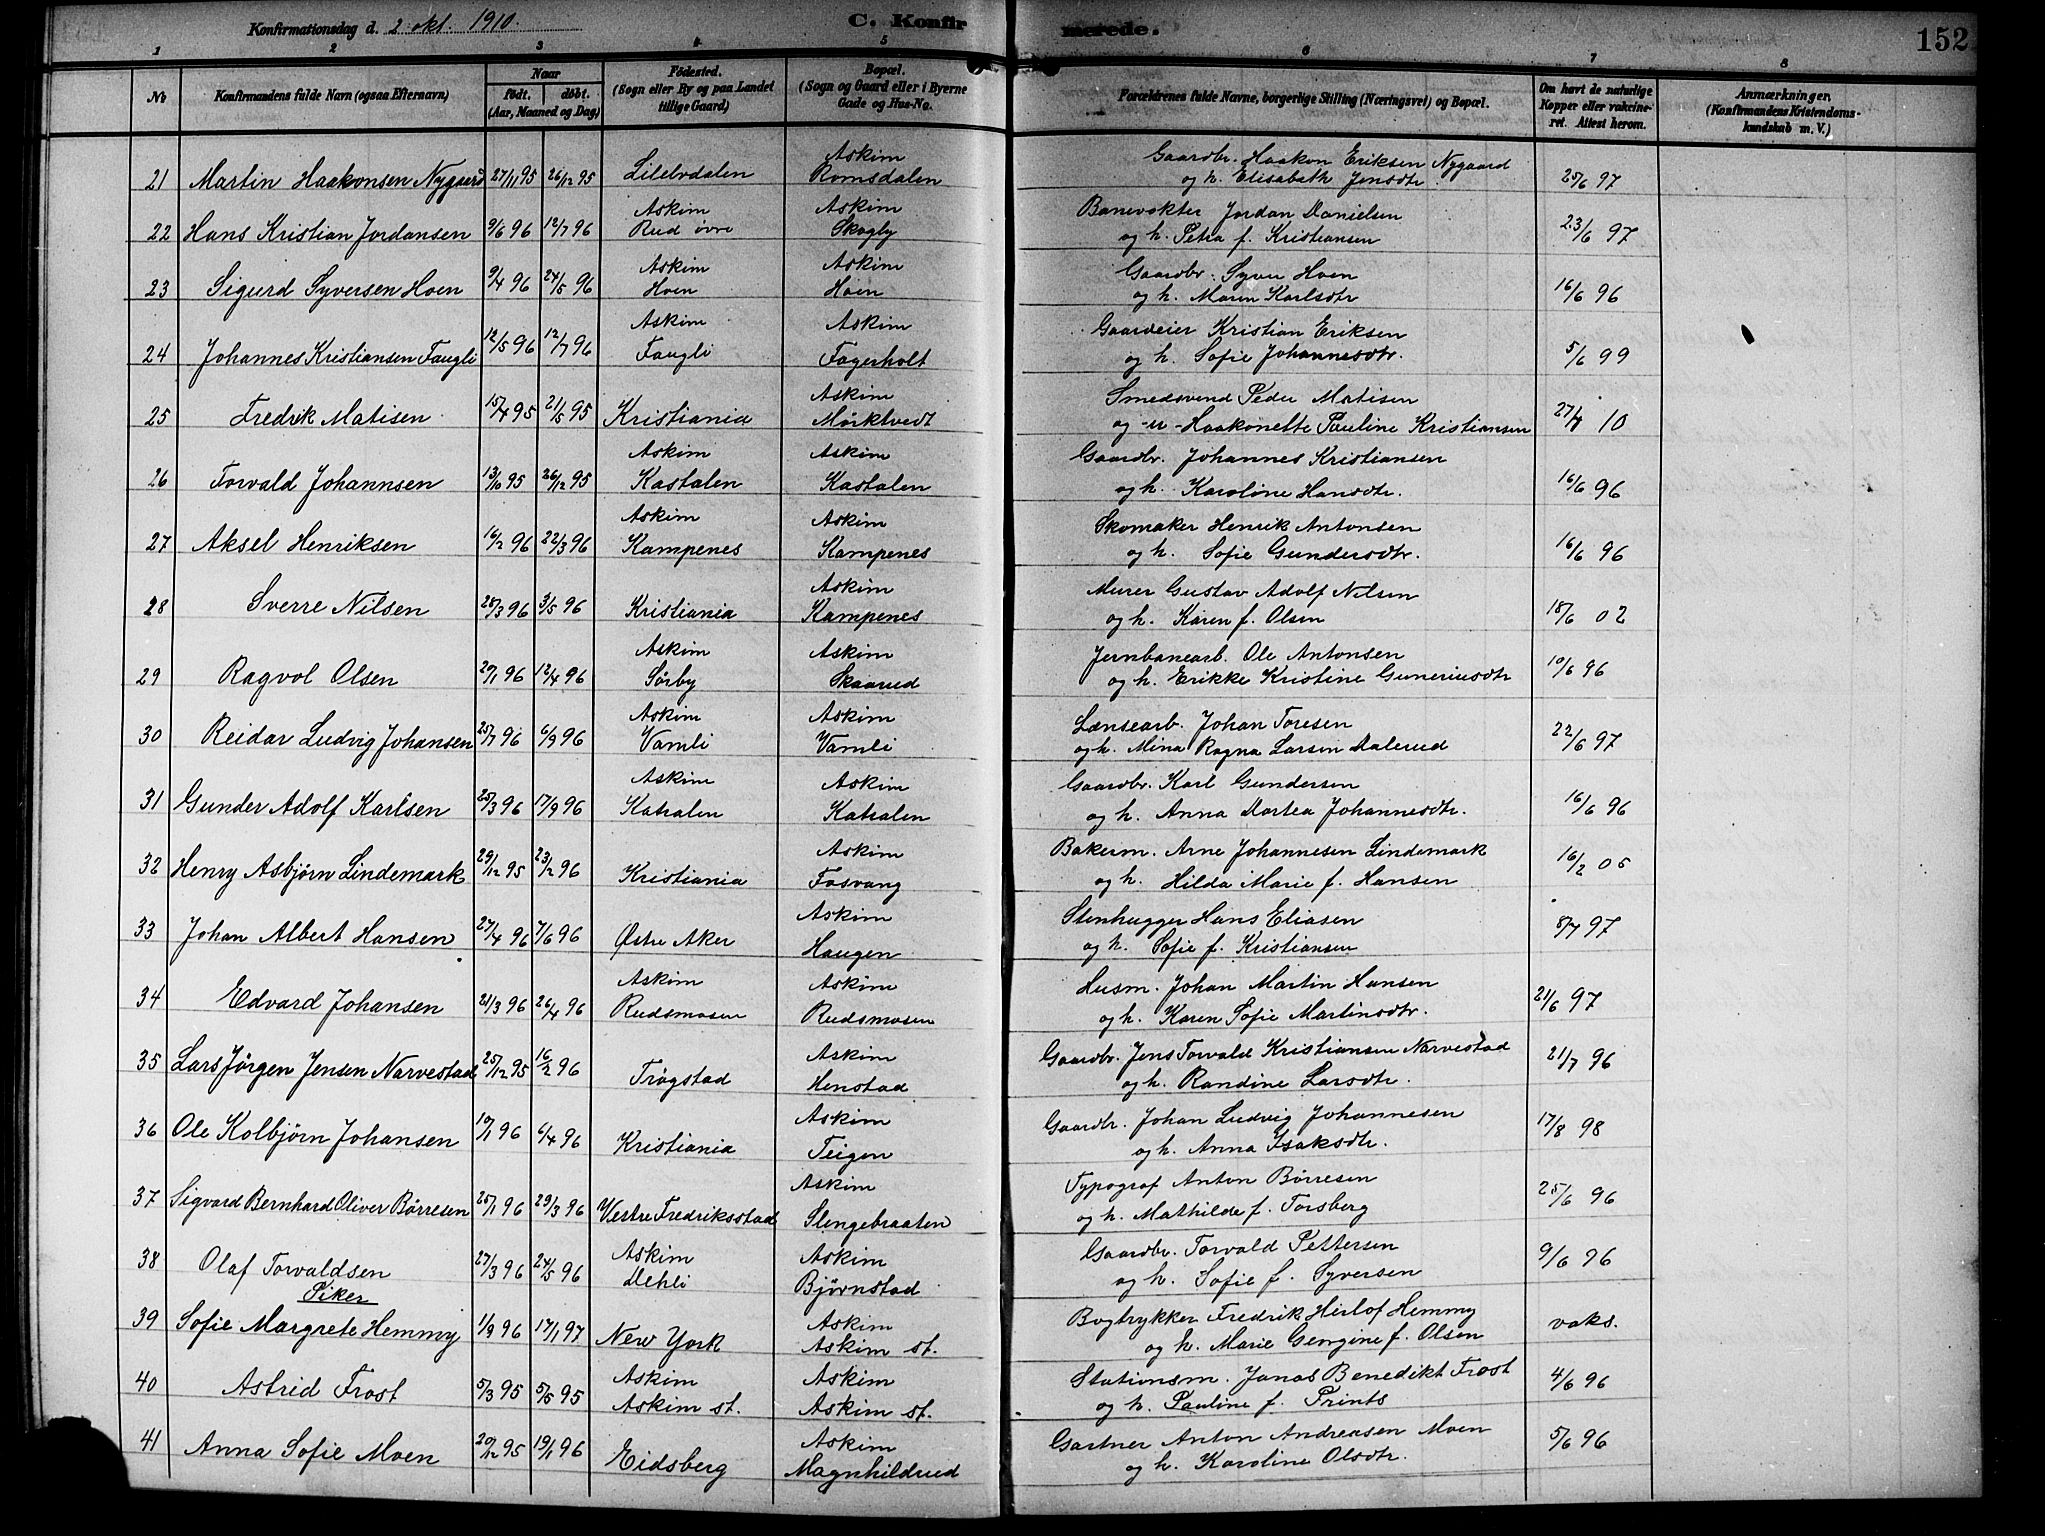 Konfirmationsdag d. 2 okt. 1910. C. Konfirmerede. 152
1 2 3 4 5 6 7 8
No Konfirmandens fulde Navn (ogsaa Efternavn) Naar født. døbt. (Aar, Maaned og Dag) Fødested. (Sogn eller By og paa Landet tillige Gaard) Bopæl. (Sogn og Gaard eller i Byerne Gade og Hus-No. Forældrenes fulde Navne, borgerlige Stilling (Næringsvei) og Bopæl. Om havt de naturlige Kopper eller vakcineret. Attest herom. Anmærkninger. (Konfirmandens Kristendomskundskab m. V.)
Askim Gaardbr. Haakon Eriksen Nygaard
21 Martin Haakonsen Nygaard 27/11 95 26/12 95 Romsdalen og h. Elisabeth Jensdtr. 25/6 97
Askim Askim Banevokter Jordan Danielsen
22 Hans Kristian Jordansen 9/6 96 12/7 96 Rud øvre Skogly og h. Petra f. Kristiansen 23/6 97
Askim Askim Gaardbr. Syver Hoen
23 Sigurd Syversen Hoen 9/4 96 24/5 96 Hoen Hoen og h. Maren Karlsdtr 16/6 96
Askim Askim Gaardeier Kristian Eriksen
24 Johannes Kristiansen Faugli 12/5 96 12/7 96 Faugli Fagerholt og h. Sofie Johannesdtr. 5/6 99
Askim Smedsvend Peder Matisen
25 Fredrik Matisen 15/4 95 21/5 95 Kristiania Mørktvedt og -u- Haakonette Pauline Kristiansen 27/4 10
Askim Askim Gaardbr. Johannes Kristiansen
26 Torvald Johannsen 13/10 95 26/12 95 Kastalen Kastalen og h. Karoline Hansdtr. 16/6 96
Askim Askim Skomaker Henrik Antonsen
27 Aksel Henriksen 16/2 96 22/3 96 Kampenes Kampenes og h. Sofie Gundersdtr. 16/6 96
Askim Murer Gustav Adolf Nilsen
28 Sverre Nilsen 28/3 96 3/5 96 Kristiania Kampenes og h. Karen f. Olsen 18/6 02
Askim Askim Jernbanearb. Ole Antonsen
29 Ragvol Olsen 20/1 96 12/4 96 Sørby Skaarud og h. Erikke Kristine Guneriusdtr 10/6 96
Askim Askim Lænsearb. Johan Toresen
30 Reidar Ludvig Johansen 25/7 96 6/9 96 Vamli Vamli og h. Mina Ragna Larsen Dalerud 22/6 97
Askim Askim Gaardbr. Karl Gundersen
31 Gunder Adolf Karlsen 25/3 96 17/9 96 Katralen Katralen og h. Anna Dortea Johannesdtr. 16/6 96
Askim Bakerm. Arne Johannesen Lindemark
32 Henry Asbjørn Lindemark 29/12 95 23/2 96 Kristiania Fosvang og h. Hilda Marie f. Hansen 16/2 05
Askim Stenhugger Hans Eliasen
33 Johan Albert Hansen 27/4 96 7/6 96 Østre Aker Haugen og h. Sofie f. Kristiansen 8/7 97
Askim Askim Husm. Johan Martin Hansen
34 Edvard Johansen 21/3 96 26/4 96 Rudsmosen Rudsmosen og h. Karen Sofie Martinsdtr. 21/6 97
Askim Gaardbr. Jens Torvald Kristiansen Narvestad
35 Lars Jørgen Jensen Narvestad 25/12 95 16/2 96 Trøgstad Henstad og h. Randine Larsdtr. 21/7 96
Askim Gaardbr. Johan Ludvig Johannesen
36 Ole Kolbjørn Johansen 10/1 96 6/4 96 Kristiania Teigen og h. Anna Isaksdtr. 17/8 98
Askim Typograf Anton Børresen
37 Sigvard Bernhard Oliver Børresen 25/1 96 29/3 96 Vestre Fredriksstad Slengebraaten og h. Mathilde f. Torsberg 25/6 96
Askim Askim Gaardbr. Torvald Pettersen
38 Olaf Torvaldsen 27/3 96 24/5 96 Dehli Bjørnstad og h. Sofie f. Syversen 9/6 96
Piker
Askim Bogtrykker Fredrik Herlof Hemmy
39 Sofie Margrete Hemmy 1/9 96 17/1 97 New York Askim st. og h. Marie Georgine f. Olsen vaks.
Askim Askim Stationsm. Jonas Benedikt Frost
40 Astrid Frost 5/3 95 5/5 95 Askim st. Askim st. og h. Pauline f. Prints 4/6 96
Askim Gartner Anton Andreasen Moen
41 Anna Sofie Moen 20/12 95 19/1 96 Eidsberg Magnhildrud og h. Karoline Olsdtr. 5/6 96